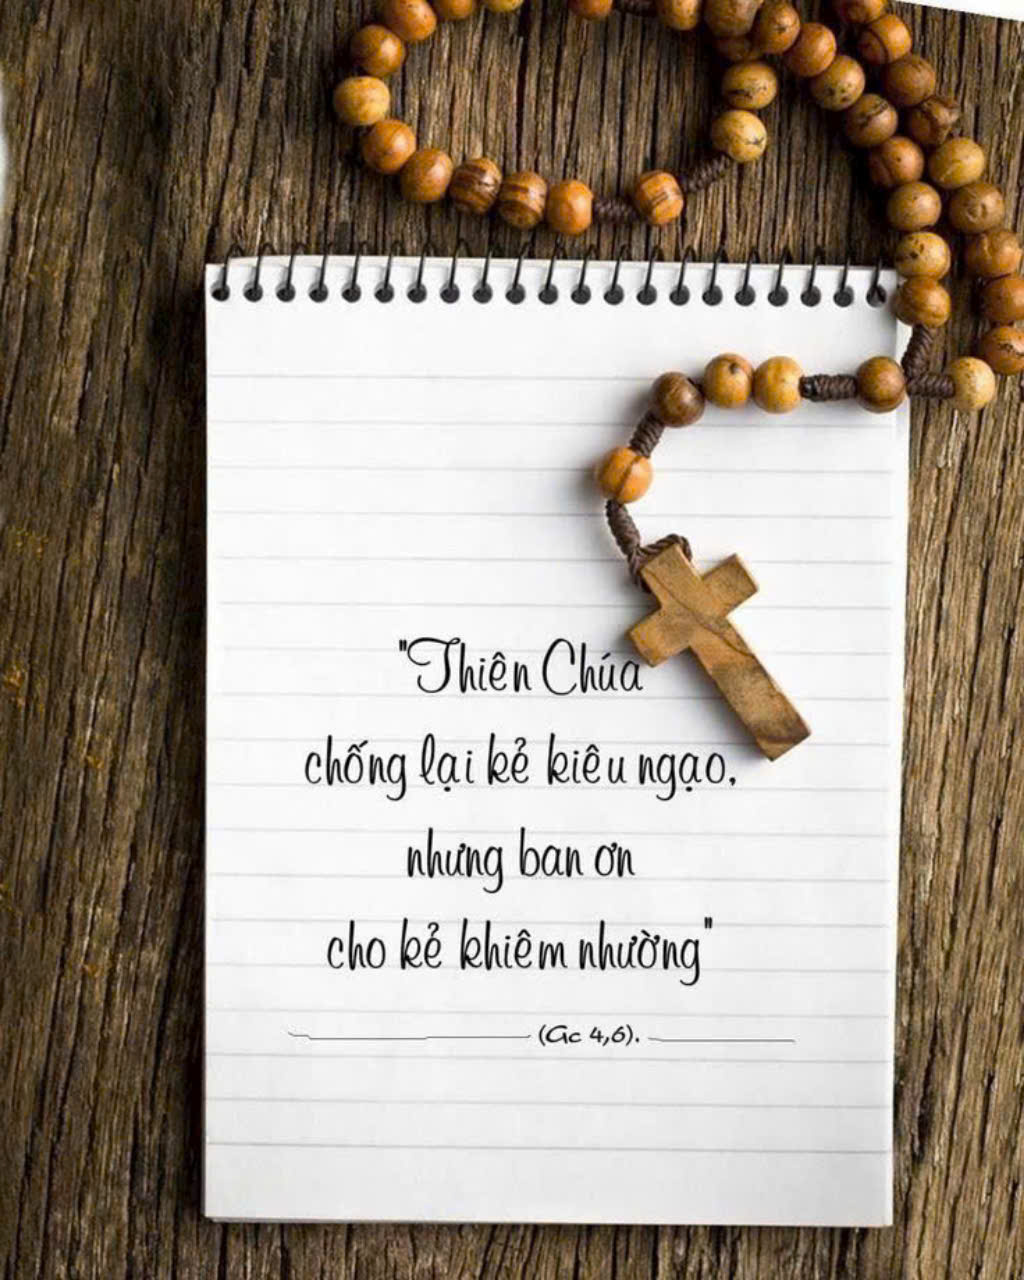 "Thiên Chúa
chống lại kẻ kiêu ngạo,
nhưng ban ơn
cho kẻ khiêm nhường"
(Gc 4,6).